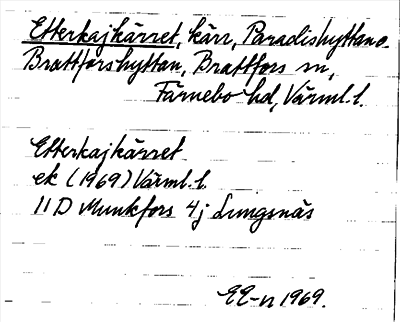 Etterkajkärret, kärr, Paradishyttan o.
Brattforshyttan, Brattfors sn,
Färnebo hd, Värml. l.
Etterkajkärret
ek (1969) Värml. l.
11D Munkfors 4j Lungsnäs
EE-n 1969.